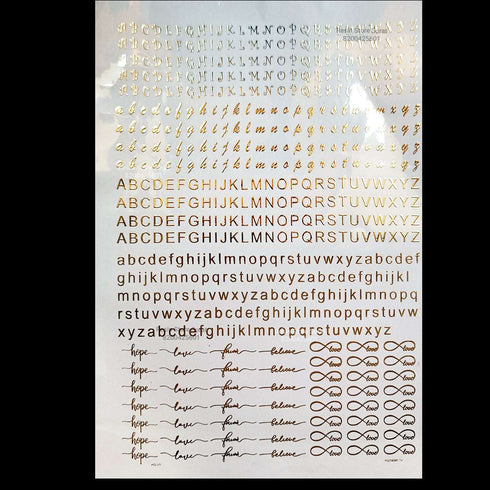 ABCDEFGHIJKLMNOPQRSTUVWXYZ
ABCDEFGHIJKLMNOPQRSTUVWXYZ
8200425601
ABCDEFGHIJKLMNOPQRSTUVWXYZ
ABCDEFGHIJKLMNOPQRSTUVWXYZ
ABCDEFGHIJKLMNOPQRSTUVWXYZ
abcdefghijklmnopqrstuvwxyz
abcdefghijklmnopqrstuvwxyz
abcdefghijklmnopqrstuvwxyz
abcdefghijklmnopqrstuvwxyz
ABCDEFGHIJKLMNOPQRSTUVWXYZ
ABCDEFGHIJKLMNOPQRSTUVWXYZ
ABCDEFGHIJKLMNOPQRSTUVWXYZ
ABCDEFGHIJKLMNOPQRSTUVWXYZ
abcdefghijklmnopqrstuvwxyzabcdef
ghijklmnopqrstuvwxyzabcdefghijkl
mnopqrstuvwxyzabcdefghijklmnopq
rstuvwxyzabcdefghijklmnopqrstuvw
xyzabcdefghijklmnopqrstuvwxyz
8200425601
hope love faith believe love love love
hope love faith believe love love love
hope love faith believe love love love
hope love faith believe love love love
hope love faith believe love love love
hope love faith believe love love love
hope love faith believe love love love
hope love faith believe love love love